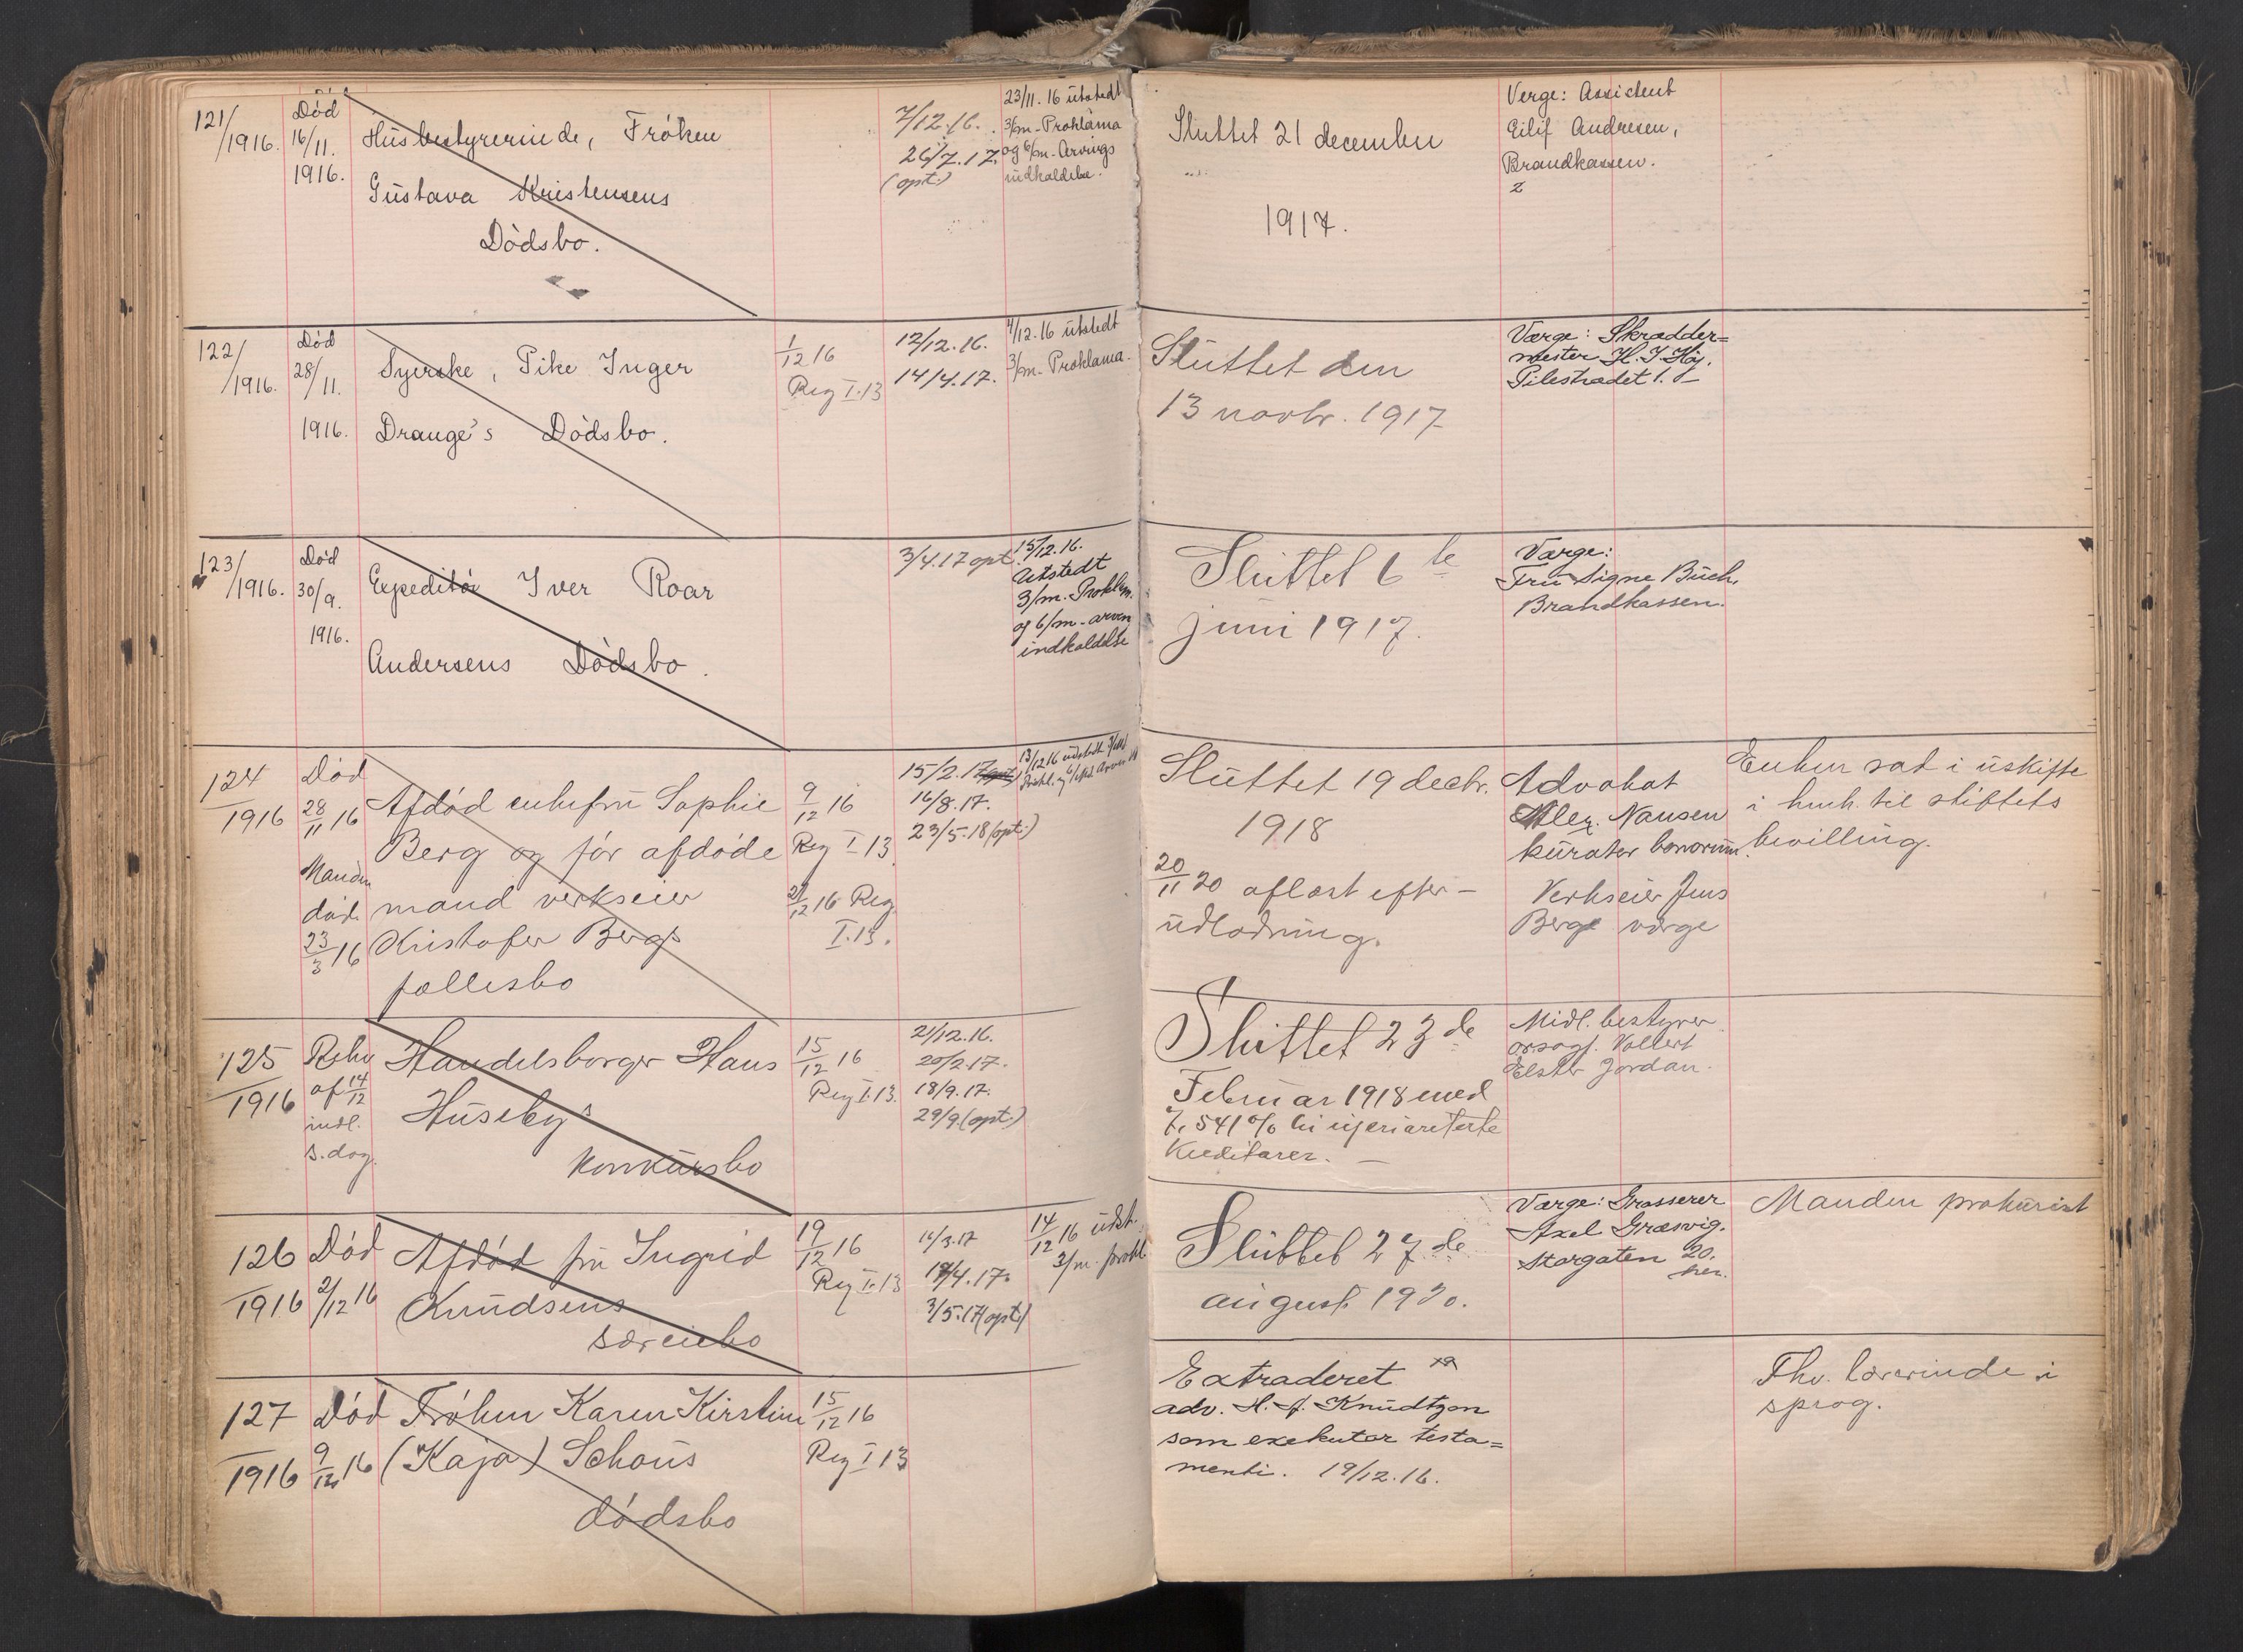 121/1916.
Død
16/11.
1916.
Husbestyrerinde, Frøken
Gustava Kristensens
Dødsbo.
7/12.16.
26/7.17.
(opt.)
23/11.16 utstedt
3/m-Proklama
og 6/m-Arvings
indkaldelse.
Sluttet 21 december
1917.
Verge: Assistent
Eilif Andresen,
Brandkassen.
122/1916.
Død
28/11.
1916.
Syerske, Pike Inger
Drange's Dødsbo.
1/12 16
Reg I.13
12/12.16.
14/4.17.
4/12.16 utstedt
3/m-Proklama.
Sluttet den
13 novbr. 1917
Værge: Skrædder=
mester H. J. Høj.
Pilestrædet 1.
123/1916.
Død
30/9.
1916.
Expeditør Iver Roar
Andersens Dødsbo.
3/4.17 opt.
15/12.16.
Utstedt
3/m. Proklam.
og 6/m-arven
indkaldelse
Sluttet 6te
juni 1917.
Værge:
Fru Signe Buch,
Brandkassen.
124/1916
Død
28/11 16
Manden
død
23/3 16
Afdød enkefru Sophie
Berg og før afdøde
mand verkseier
Kristofer Bergs
fællesbo
9/12 16
Reg I 13
21/12 16 Reg
I.13.
15/2.17
16/8.17.
23/5.18 (opt.)
13/12 16 udstedt
Sluttet 19 decbr.
1918
20/11 20 aflæst efter-
udlodning.
Advokat
Alex. Nansen
kurator bonorum.
Verkseier Jens
Berge værge
Enken sad i uskifte
i henh. til stiftets
bevilling.
125/1916
Beh.
af 14/12
indl.
s. dag
Handelsborger Hans
Huseby's
konkursbo
15/12 16
Reg I.13.
21/12.16.
20/2.17.
18/9.17.
29/9.(opt.)
Sluttet 23de
Februar 1918 med
7,541 % til uprioriterte
Kreditorer.
Midl. bestyrer
orsagf. Vollert
Elster Jordan.
126/1916
Død
2/12 16
Afdød fru Ingrid
Knudsens
særeiebo
19/12 16
Reg I.13
16/3.17
19/4.17.
3/5.17 (opt.)
14/12 16 udst.
3/m. prokl.
Sluttet 27.de
august 1920.
Værge: Grosserer
Axel Græsvig.
Storgaten 20.
her.
Manden prokurist
127/1916
Død
9/12 16
Frøken Karen Kirstine
(Kaja) Schous
dødsbo
15/12 16
Reg I 13
Extraderet
adv. H. J. Knudtzon
som exekutor testa=
menti. 19/12.16.
Fhv. lærerinde i
sprog.